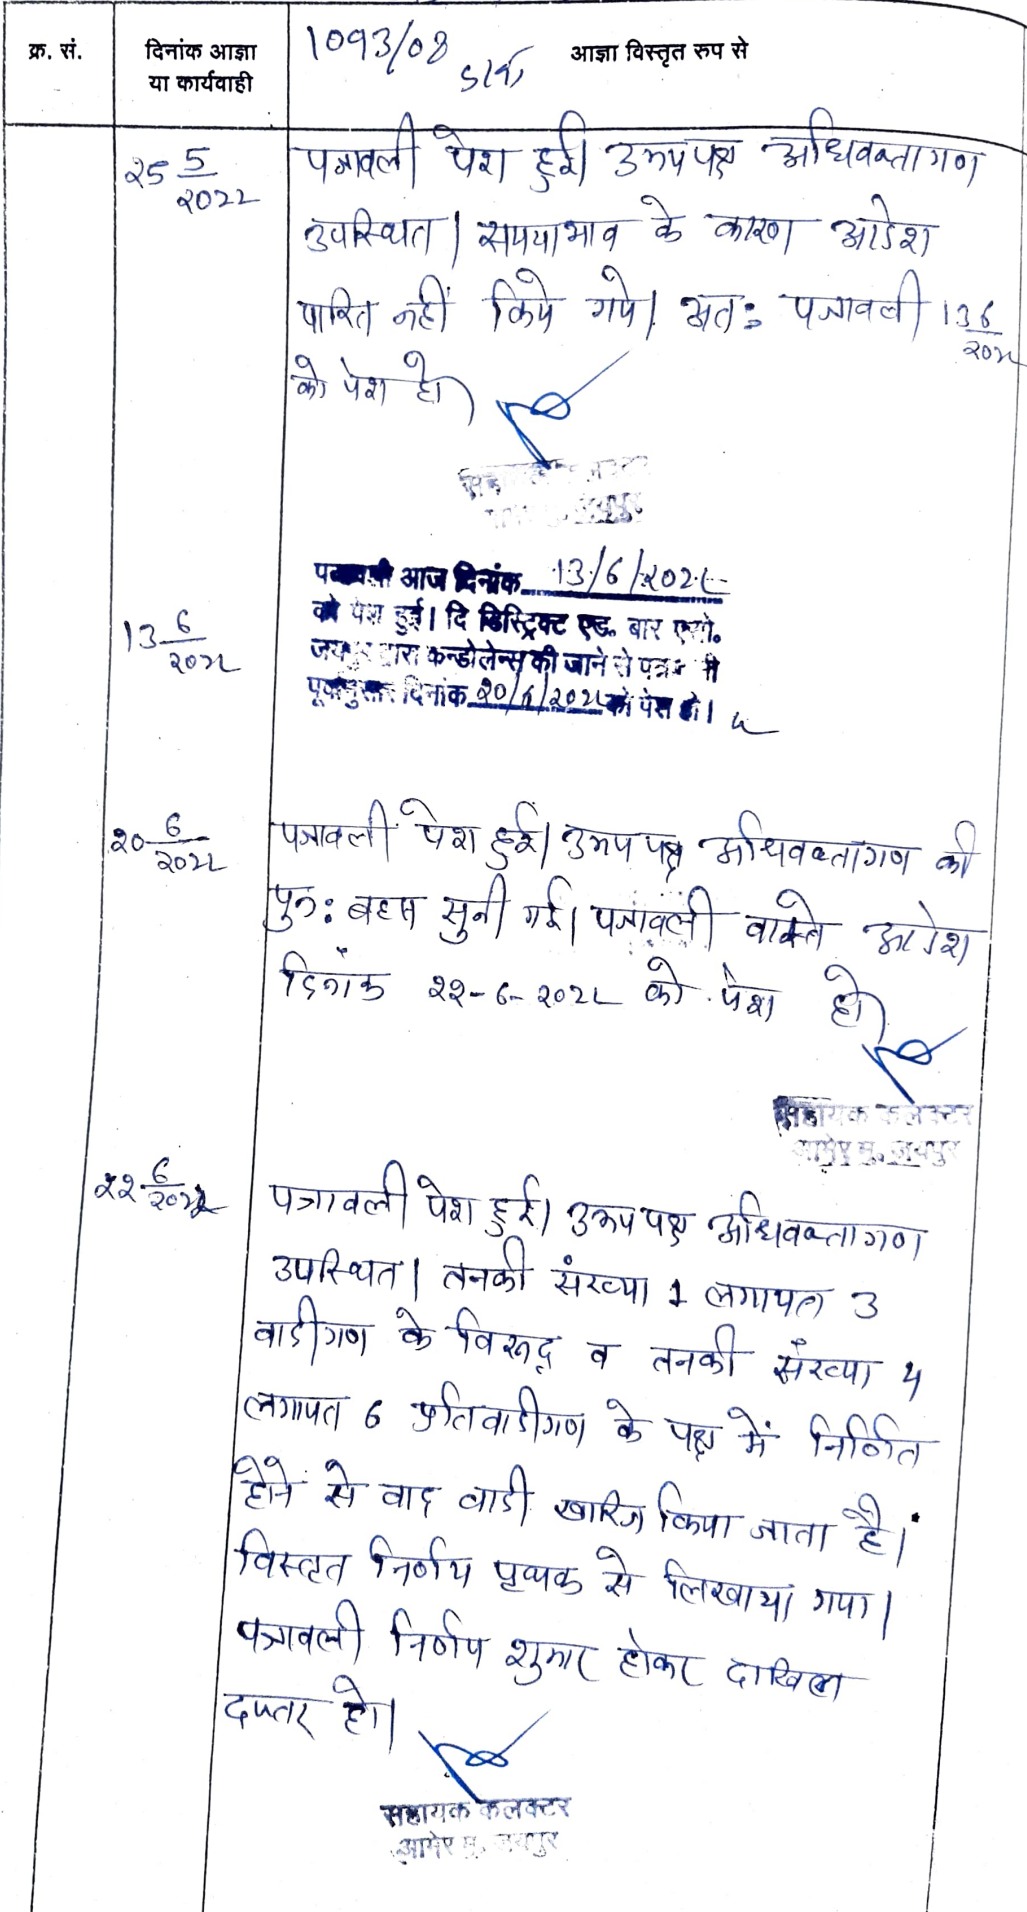 क्र. सं. दिनांक आज्ञा 1093/08 आज्ञा विस्तृत रुप से
या कार्यवाही
25 5/2022 पत्रावली पेश हुई। उभयपक्ष अधिवक्तागण
उपस्थित। समयाभाव के कारण आदेश
पारित नहीं किये गये। अतः पत्रावली 13 6/2022
को पेश हो।
13 6/2022
पत्रावली आज दिनांक 13/6/2022
को पेश हुई। दि डिस्ट्रिक्ट एड. बार एसो.
जयपुर द्वारा कन्डोलेन्स की जाने से
पूर्वानुसार दिनांक 20/6/2022 को पेश हो।
20 6/2022 पत्रावली पेश हुई। उभयपक्ष अधिवक्तागण की
पुनः बहस सुनी गई। पत्रावली वास्ते आदेश
दिनांक 22-6-2022 को पेश हो।
सहायक कलक्टर
आमेर मु. जयपुर
22 6/2022 पत्रावली पेश हुई। उभयपक्ष अधिवक्तागण
उपस्थित। तनकी संख्या 1 लगायत 3
वादीगण के विरूद्व व तनकी संख्या 4
लगायत 6 प्रतिवादीगण के पक्ष में निर्णित
होने से वाद वादी खारिज किया जाता है।
विस्तृत निर्णय पृथक से लिखाया गया।
पत्रावली निर्णय शुमार होकर दाखिल
दफ्तर हो।
सहायक कलक्टर
आमेर मु. जयपुर